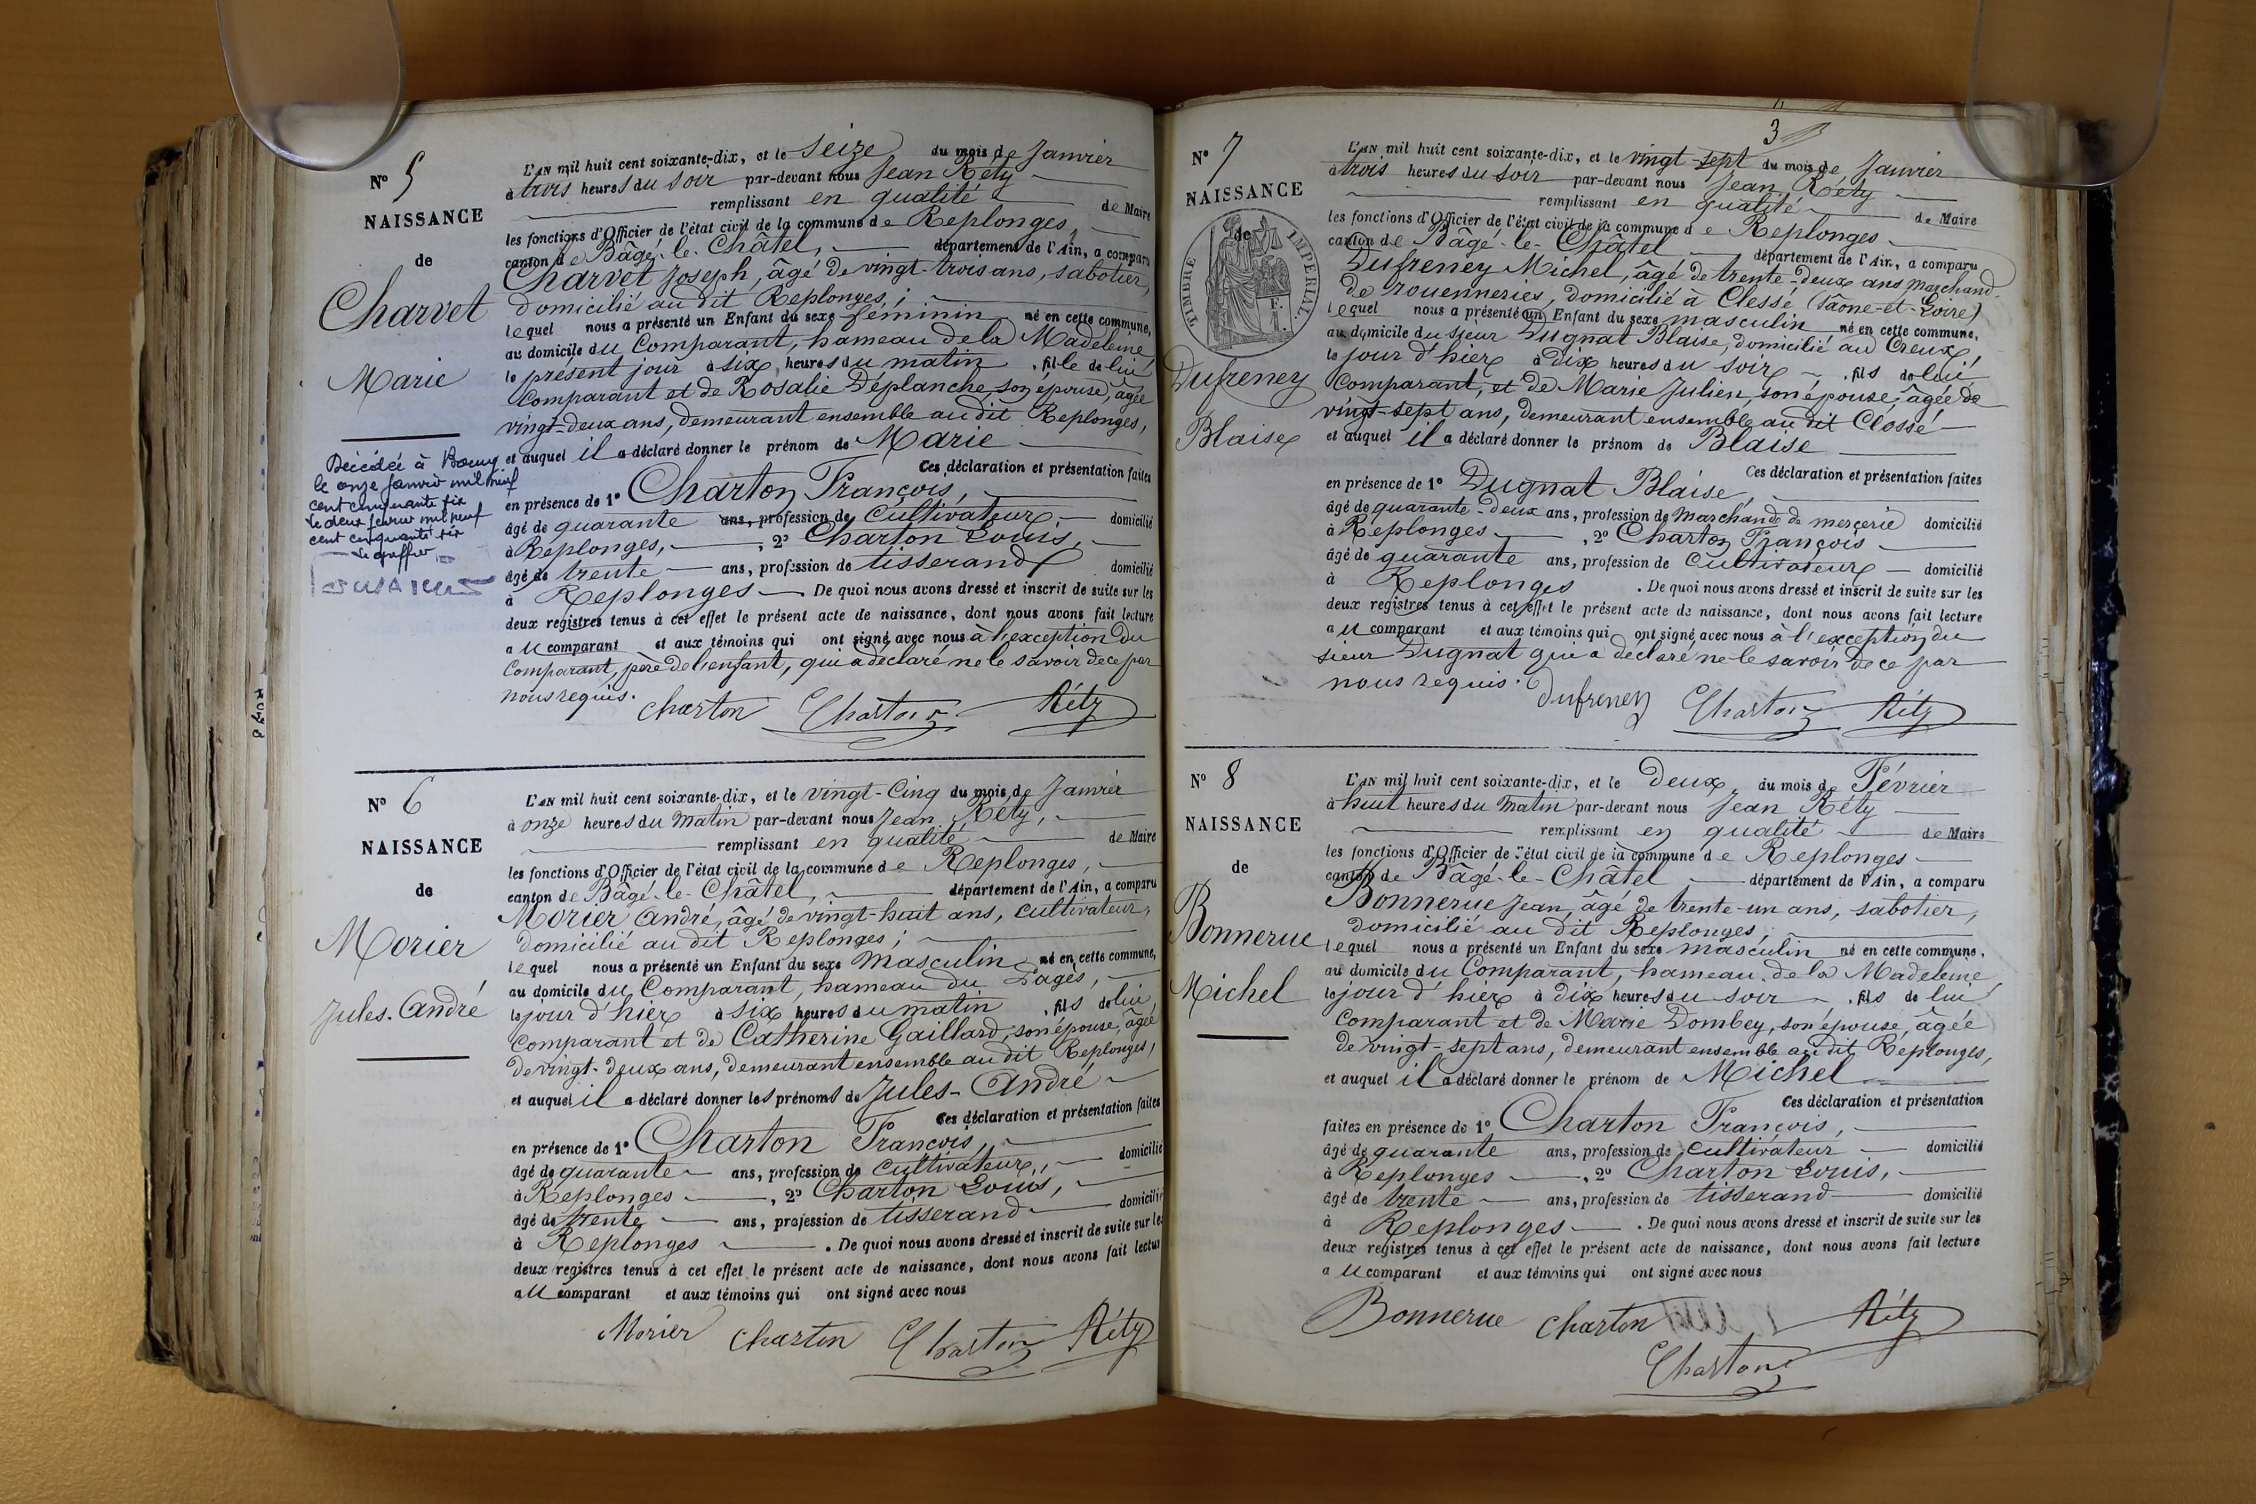 N° 5
NAISSANCE
de
Charvet
Marie
Décédée à Bourg
le onze janvier mil neuf
cent cinquante six
Le deux février mil neuf
cent cinquante six
Le greffier
L'AN mil huit cent soixante-dix, et le seize du mois de Janvier
à trois heures du soir par-devant nous Jean Réty
remplissant en qualité de Maire
les fonctions d'Officier de l'état civil de la commune de Replonges,
canton de Bâgé-le-Châtel, département de l'Ain, a comparu
Charvet Joseph, âgé de vingt-trois ans, sabotier,
domicilié au dit Replonges;
lequel nous a présenté un Enfant du sexe féminin né en cette commune,
au domicile du Comparant, hameau de la Madeleine
le présent jour à six heures du matin , fille de lui
Comparant et de Rosalie Déplanche, son épouse, âgée
vingt-deux ans, demeurant ensemble au dit Replonges,
et auquel il a déclaré donner le prénom de Marie
Ces déclaration et présentation faites
en présence de 1° Charton François,
âgé de quarante ans, profession de Cultivateur, domicilié
à Replonges, , 2° Charton Louis,
âgé de trente ans, profession de tisserand domicilié
à Replonges De quoi nous avons dressé et inscrit de suite sur les
deux registres tenus à cet effet le présent acte de naissance, dont nous avons fait lecture
au comparant et aux témoins qui ont signé avec nous à l'exception du
Comparant, père de l'enfant, qui a déclaré ne le savoir de ce par
nous requis.
Charton Charton Réty
N° 6
NAISSANCE
de
Morier
Jules-André
L'AN mil huit cent soixante-dix, et le vingt-cinq du mois de Janvier
à onze heures du Matin par-devant nous Jean Réty,
remplissant en qualité de Maire
les fonctions d'Officier de l'état civil de la commune de Replonges,
canton de Bâgé-le-Châtel, département de l'Ain, a comparu
Morier André, âgé de vingt-huit ans, cultivateur,
domicilié au dit Replonges;
lequel nous a présenté un Enfant du sexe Masculin né en cette commune,
au domicile du Comparant, hameau du Pagés,
le jour d'hier à six heures du matin , fils de lui,
Comparant et de Catherine Gaillard, son épouse, âgée
de vingt-deux ans, demeurant ensemble au dit Replonges,
et auquel il a déclaré donner les prénoms de Jules-André
Ces déclaration et présentation faites
en présence de 1° Charton François,
âgé de quarante ans, profession de Cultivateur, domicilié
à Replonges , 2° Charton Louis,
âgé de trente ans, profession de tisserand domicilié
à Replonges . De quoi nous avons dressé et inscrit de suite sur les
deux registres tenus à cet effet le présent acte de naissance, dont nous avons fait lecture
au comparant et aux témoins qui ont signé avec nous
Morier Charton Charton Réty
3
N° 7
NAISSANCE
de
TIMBRE IMPÉRIAL
Dufreney
Blaise
L'AN mil huit cent soixante-dix, et le vingt-sept du mois de Janvier
à trois heures du soir par-devant nous Jean Réty
remplissant en qualité de Maire
les fonctions d'Officier de l'état civil de la commune de Replonges
canton de Bâgé-le-Châtel département de l'Ain, a comparu
Dufreney Michel, âgé de trente-deux ans Marchand
de rouenneries, domicilié à Clessé (Saône-et-Loire)
lequel nous a présenté un Enfant du sexe masculin né en cette commune,
au domicile du sieur Dugnat Blaise, domicilié au Creux,
le jour d'hier à dix heures du soir , fils de lui
Comparant, et de Marie Julien, son épouse, âgée de
vingt-sept ans, demeurant ensemble au dit Clessé
et auquel il a déclaré donner le prénom de Blaise
Ces déclaration et présentation faites
en présence de 1° Dugnat Blaise,
âgé de quarante-deux ans, profession de Marchand de mercerie domicilié
à Replonges , 2° Charton François
âgé de quarante ans, profession de Cultivateur domicilié
à Replonges . De quoi nous avons dressé et inscrit de suite sur les
deux registres tenus à cet effet le présent acte de naissance, dont nous avons fait lecture
au comparant et aux témoins qui ont signé avec nous à l'exception du
sieur Dugnat qui a déclaré ne le savoir de ce par
nous requis.
Dufreney Charton Réty
N° 8
NAISSANCE
de
Bonnerue
Michel
L'AN mil huit cent soixante-dix, et le Deux du mois de Février
à huit heures du Matin par-devant nous Jean Réty
remplissant en qualité de Maire
les fonctions d'Officier de l'état civil de la commune de Replonges
canton de Bâgé-le-Châtel département de l'Ain, a comparu
Bonnerue Jean, âgé de trente-un ans, sabotier,
domicilié au dit Replonges,
lequel nous a présenté un Enfant du sexe masculin né en cette commune,
au domicile du Comparant, hameau de la Madeleine,
le jour d'hier à dix heures du soir , fils de lui
Comparant et de Marie Dombey, son épouse, âgée
de vingt-sept ans, demeurant ensemble au dit Replonges,
et auquel il a déclaré donner le prénom de Michel
Ces déclaration et présentation
faites en présence de 1° Charton François,
âgé de quarante ans, profession de Cultivateur domicilié
à Replonges , 2° Charton Louis,
âgé de trente ans, profession de tisserand domicilié
à Replonges . De quoi nous avons dressé et inscrit de suite sur les
deux registres tenus à cet effet le présent acte de naissance, dont nous avons fait lecture
au comparant et aux témoins qui ont signé avec nous
Bonnerue Charton Réty
Charton